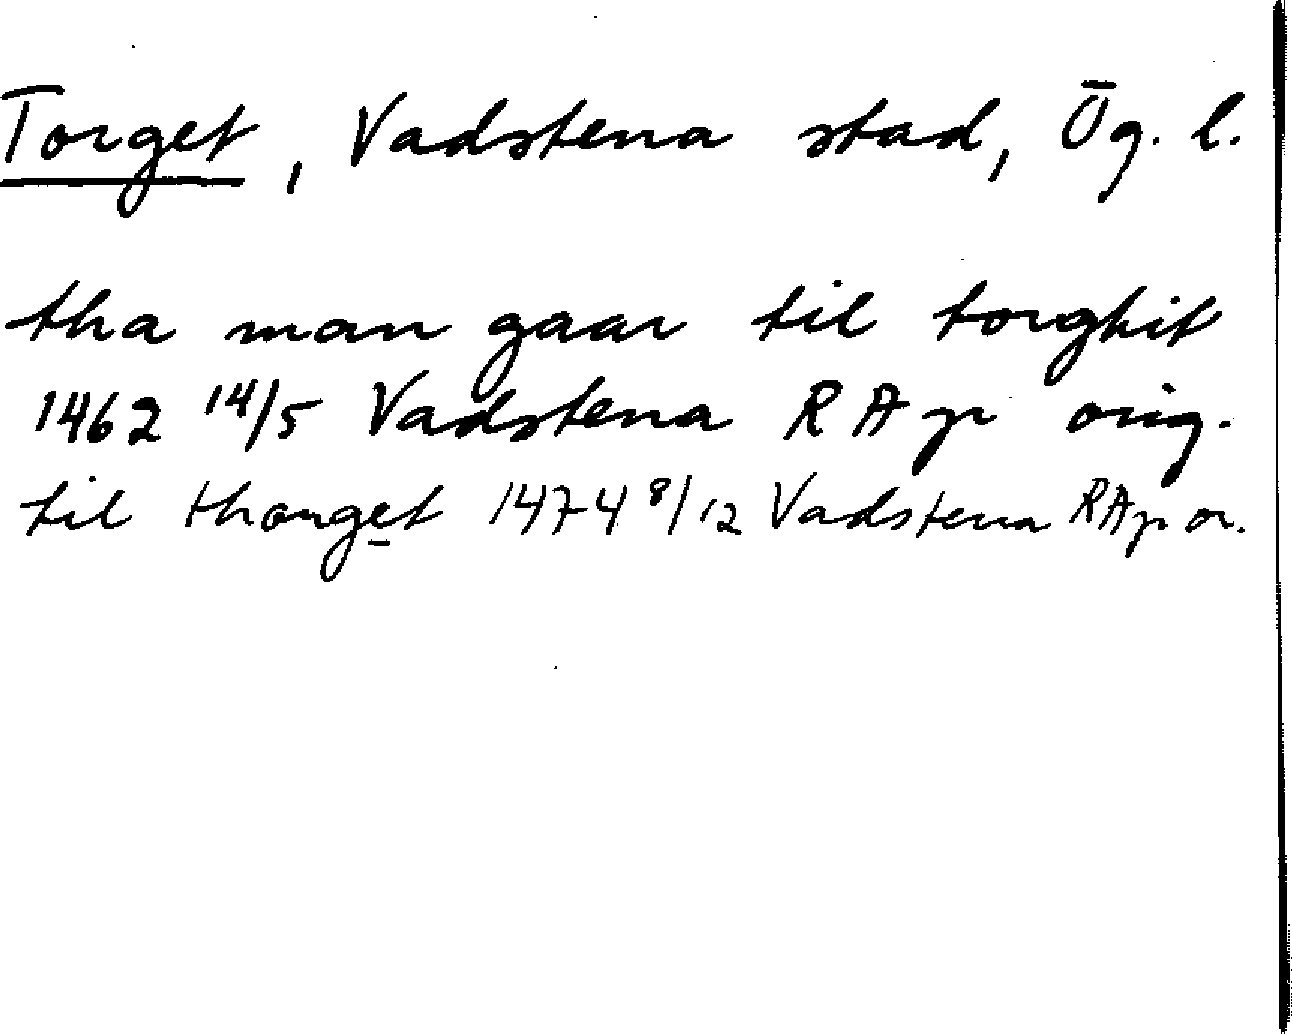 Torget, Vadstena stad, Ög. l.
tha man gaar til torghit
1462 14/5 Vadstena RA p orig.
til thorget 1474 8/12 Vadstena RA p or.